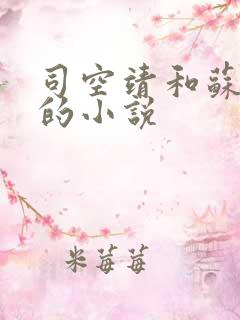 司空靖和蘇
的小說
米莓莓